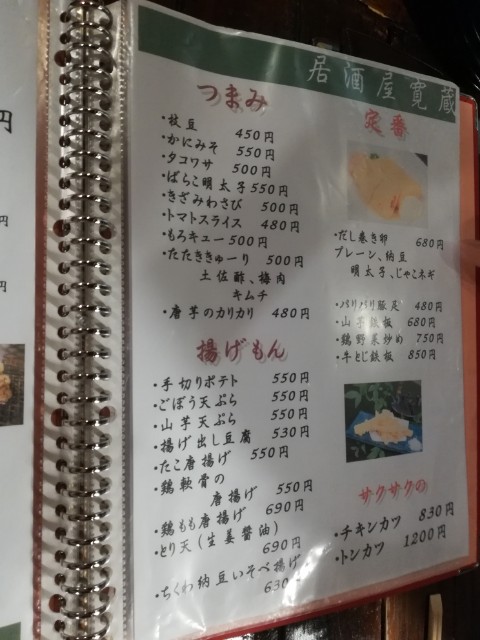 居酒屋寛蔵
つまみ
・枝豆 450円
・かにみそ 550円
・タコワサ 500円
・ばらこ明太子 550円
・きざみわさび 500円
・トマトスライス 480円
・もろキュー 500円
・たたききゅーり 500円
土佐酢、梅肉
キムチ
・唐芋のカリカリ 480円
揚げもん
・手切りポテト 550円
・ごぼう天ぷら 550円
・山芋天ぷら 550円
・揚げ出し豆腐 530円
・たこ唐揚げ 550円
・鶏軟骨の
唐揚げ 550円
・鶏もも唐揚げ 690円
・とり天(生姜醤油)
690円
・ちくわ納豆いそべ揚げ
630円
定番
・だし巻き卵 680円
プレーン、納豆
明太子、じゃこネギ
・パリパリ豚足 480円
・山芋鉄板 680円
・鶏野菜炒め 750円
・牛とじ鉄板 850円
サクサクの
・チキンカツ 830円
・トンカツ 1200円
円
円
円